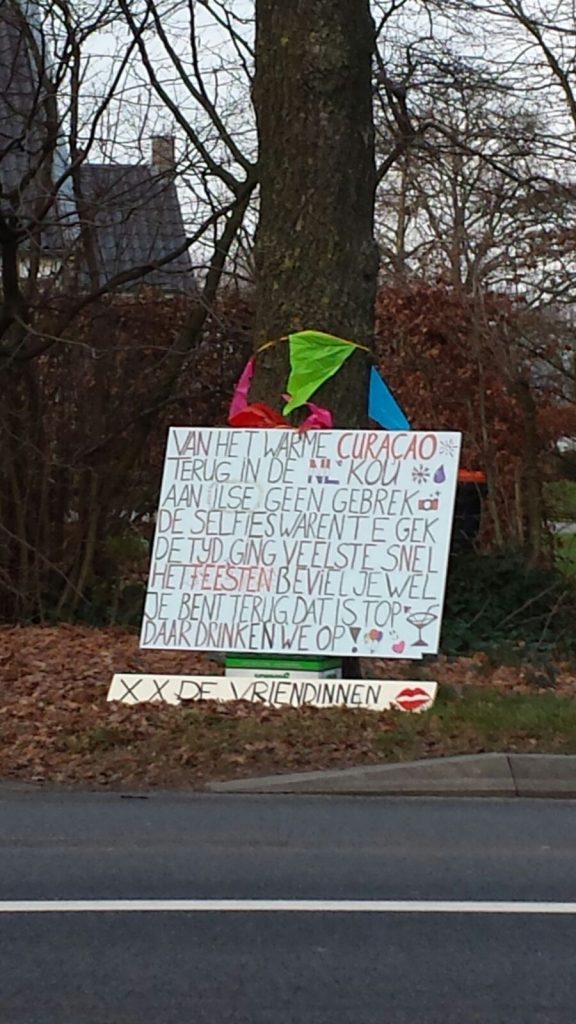 VAN HET WARME CURAÇAO
TERUG IN DE NL KOU
AAN ILSE GEEN GEBREK
DE SELFIES WAREN TE GEK
DE TIJD GING VEELSTE SNEL
HET FEESTEN BEVIEL JE WEL
JE BENT TERUG DAT IS TOP
DAAR DRINKEN WE OP
X X DE VRIENDINNEN